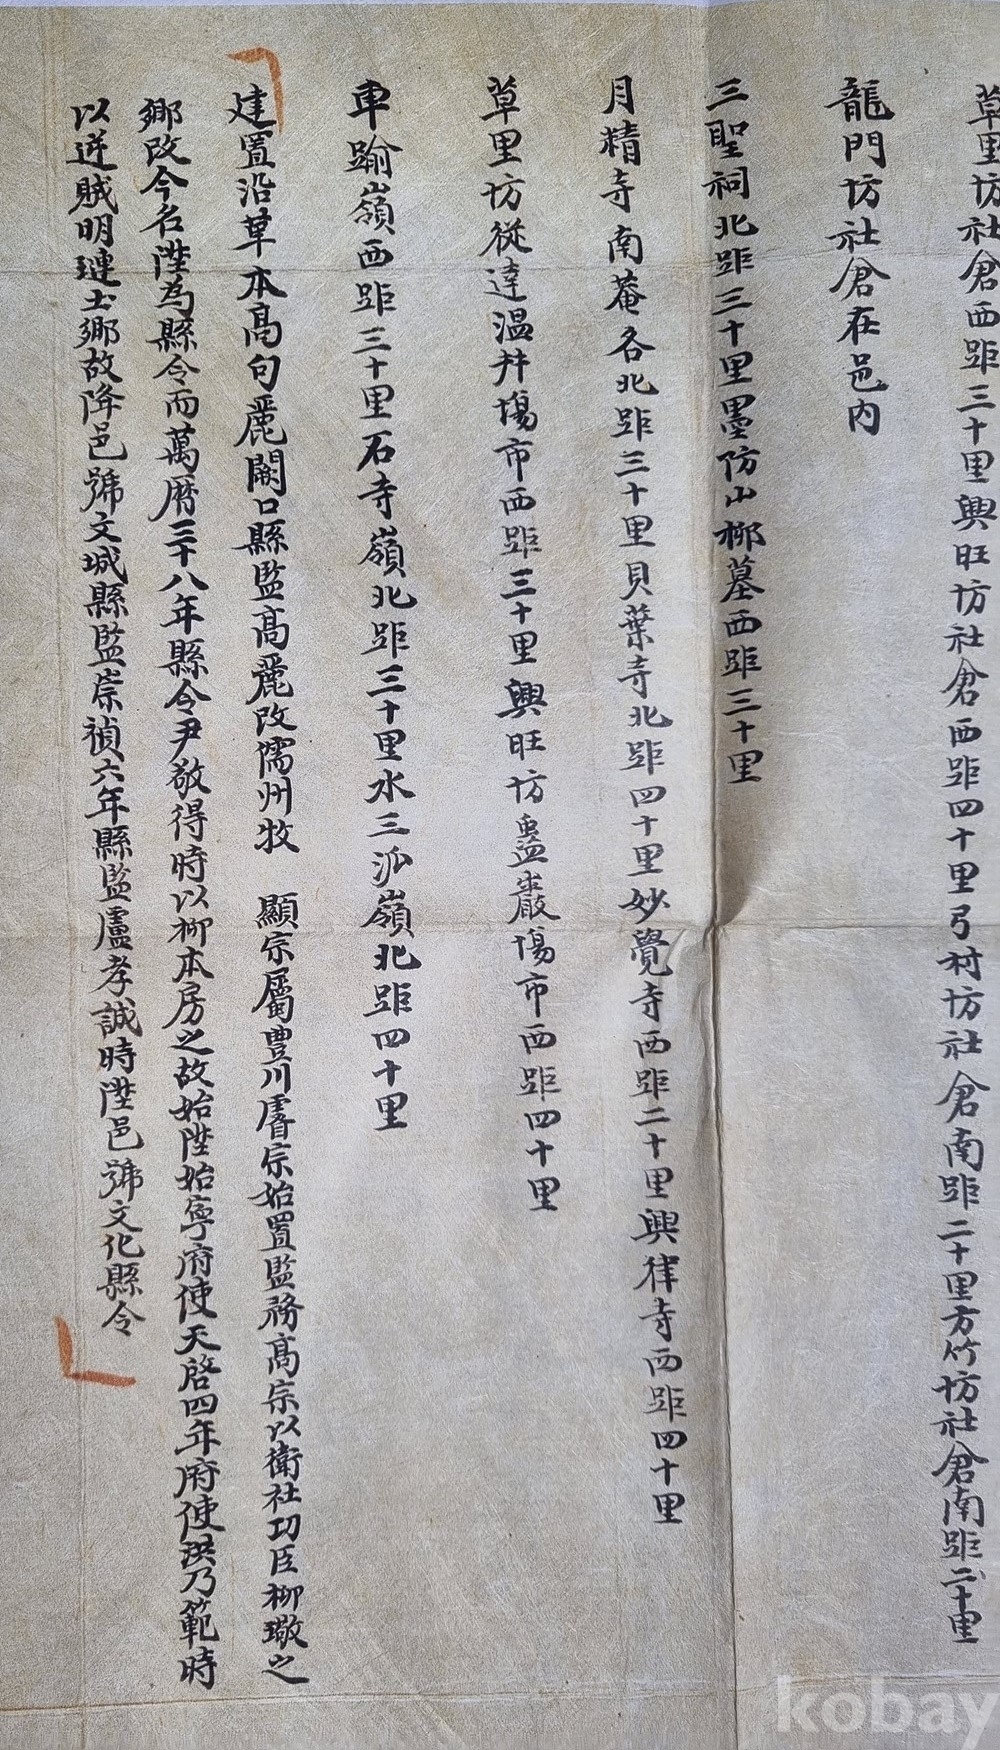 草里坊社倉西距三十里興旺坊社倉西距四十里弓村坊社倉南距二十里方竹坊社倉南距二十里
龍門坊社倉在邑內
三聖祠北距三十里墨防山柳墓西距三十里
月精寺南菴各北距三十里貝葉寺北距四十里妙覺寺西距二十里興律寺西距四十里
草里坊從達溫井場市西距三十里興旺坊盝巖場市西距四十里
車踰嶺西距三十里石寺嶺北距三十里水三泒嶺北距四十里
建置沿革本高句麗闕口縣監高麗改儒州牧 顯宗屬豊川睿宗始置監務高宗以衛社功臣柳璥之
鄉改今名陞為縣令而萬曆三十八年縣令尹敬得時以柳本房之故始陞始寧府使天啓四年府使洪乃範時
以逆賊明璉土鄉故降邑號文城縣監崇禎六年縣監盧孝誠時陞邑號文化縣令
kobay